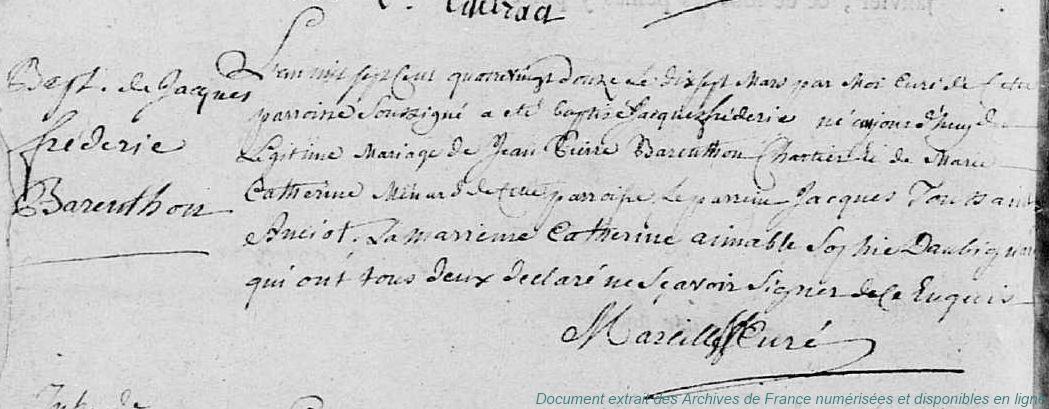 Bapt. de Jacques
fréderic
Barenthon
L'an mil sept cent quatrevingt douze le dix sept Mars par Moi Curé de Cette
parroisse Soussigné a eté baptisé Jacques fréderic né aujourd'huy de
Légitime Mariage de Jean Pierre Barenthon Chartier et de Marie
Catherine Ménard de cette parroisse. Le parrein Jacques Toussaint
Anciot. La marreine Catherine aimable Sophie Daubigni
qui ont tous deux declaré ne Sçavoir Signer de Ce Enquis
Curé
Document extrait des Archives de France numérisées et disponibles en ligne